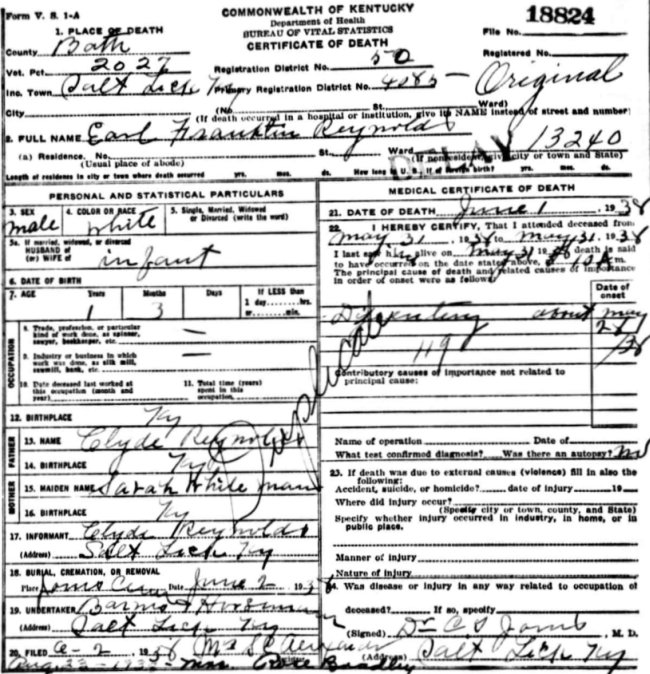 Form V. S. 1-A
COMMONWEALTH OF KENTUCKY
Department of Health
BUREAU OF VITAL STATISTICS
CERTIFICATE OF DEATH
File No. 18824
1. PLACE OF DEATH
County Bath
Registered No.
Vot. Pct. 2027
Registration District No. 50
Inc. Town Salt Lick Ky Primary Registration District No. 4085
Original
City (No. St. Ward)
(If death occurred in a hospital or institution, give its NAME instead of street and number)
2. FULL NAME Earl Franklin Reynolds
13240
DELAY
(a) Residence. No. St., Ward
(Usual place of abode) (If nonresident give city or town and State)
Length of residence in city or town where death occurred yrs. mos. ds. How long in U. S., if of foreign birth? yrs. mos. ds.
PERSONAL AND STATISTICAL PARTICULARS
3. SEX 4. COLOR OR RACE 5. Single, Married, Widowed or Divorced (write the word)
male white
5a. If married, widowed, or divorced
HUSBAND of
(or) WIFE of infant
6. DATE OF BIRTH
7. AGE Years Months Days If LESS than
1 3 — 1 day,....hrs.
or.....min.
OCCUPATION
8. Trade, profession, or particular
kind of work done, as spinner,
sawyer, bookkeeper, etc. —
9. Industry or business in which
work was done, as silk mill,
sawmill, bank, etc. —
10. Date deceased last worked at
this occupation (month and
year)
11. Total time (years)
spent in this
occupation
Duplicate
12. BIRTHPLACE Ky
FATHER
13. NAME Clyde Reynolds
14. BIRTHPLACE Ky
MOTHER
15. MAIDEN NAME Sarah White man
16. BIRTHPLACE Ky
17. INFORMANT Clyde Reynolds
(Address) Salt Lick Ky
18. BURIAL, CREMATION, OR REMOVAL
Place Jones Cem Date June 2 1938
19. UNDERTAKER
(Address) Salt Lick Ky
20. FILED 6-2, 1938 Mrs
Bradley
MEDICAL CERTIFICATE OF DEATH
21. DATE OF DEATH June 1, 1938
22. I HEREBY CERTIFY, That I attended deceased from
May 31, 1938 to May 31, 1938
I last saw him alive on May 31, 1938 death is said
to have occurred on the date stated above, at m.
The principal cause of death and related causes of importance
in order of onset were as follows:
Date of
onset
Disentery about May
27
119 /38
Contributory causes of importance not related to
principal cause:
Name of operation Date of
What test confirmed diagnosis? Was there an autopsy? no
23. If death was due to external causes (violence) fill in also the
following:
Accident, suicide, or homicide? date of injury 19
Where did injury occur?
(Specify city or town, county, and State)
Specify whether injury occurred in industry, in home, or in
public place.
Manner of injury
Nature of injury
24. Was disease or injury in any way related to occupation of
deceased? If so, specify
(Signed) Dr C S Jones, M. D.
(Address) Salt Lick Ky